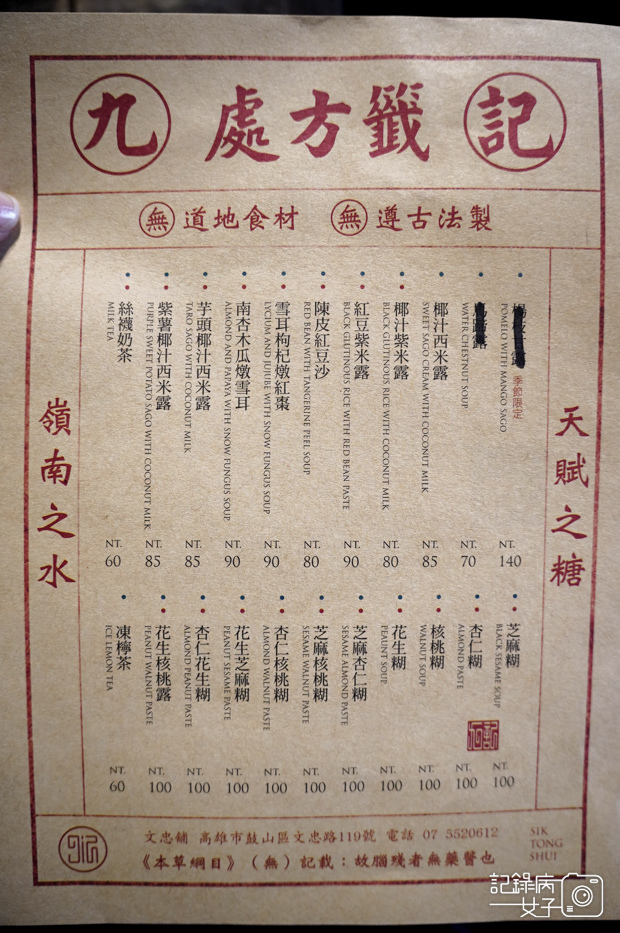 九 處方籤 記
無 道地食材 無 遵古法製
天賦之糖
POMELO WITH MANGO SAGO
季節限定
NT. 140
WATER CHESTNUT SOUP
NT. 70
椰汁西米露
SWEET SAGO CREAM WITH COCONUT MILK
NT. 85
椰汁紫米露
BLACK GLUTINOUS RICE WITH COCONUT MILK
NT. 80
紅豆紫米露
BLACK GLUTINOUS RICE WITH RED BEAN PASTE
NT. 90
陳皮紅豆沙
RED BEAN WITH TANGERINE PEEL SOUP
NT. 80
雪耳枸杞燉紅棗
LYCIUM AND JUJUBE WITH SNOW FUNGUS SOUP
NT. 90
南杏木瓜燉雪耳
ALMOND AND PAPAYA WITH SNOW FUNGUS SOUP
NT. 90
芋頭椰汁西米露
TARO SAGO WITH COCONUT MILK
NT. 85
紫薯椰汁西米露
PURPLE SWEET POTATO SAGO WITH COCONUT MILK
NT. 85
絲襪奶茶
MILK TEA
NT. 60
芝麻糊
BLACK SESAME SOUP
NT. 100
杏仁糊
ALMOND PASTE
NT. 100
核桃糊
WALNUT SOUP
NT. 100
花生糊
PEAUNT SOUP
NT. 100
芝麻杏仁糊
SESAME ALMOND PASTE
NT. 100
芝麻核桃糊
SESAME WALNUT PASTE
NT. 100
杏仁核桃糊
ALMOND WALNUT PASTE
NT. 100
花生芝麻糊
PEANUT SESAME PASTE
NT. 100
杏仁花生糊
ALMOND PEANUT PASTE
NT. 100
花生核桃露
PEANUT WALNUT PASTE
NT. 100
凍檸茶
ICE LEMON TEA
NT. 60
嶺南之水
文忠舖 高雄市鼓山區文忠路119號 電話 07 5520612
《本草綱目》（無）記載：故腦殘者無藥醫也
SIK
TONG
SHUI
記錄病
女子